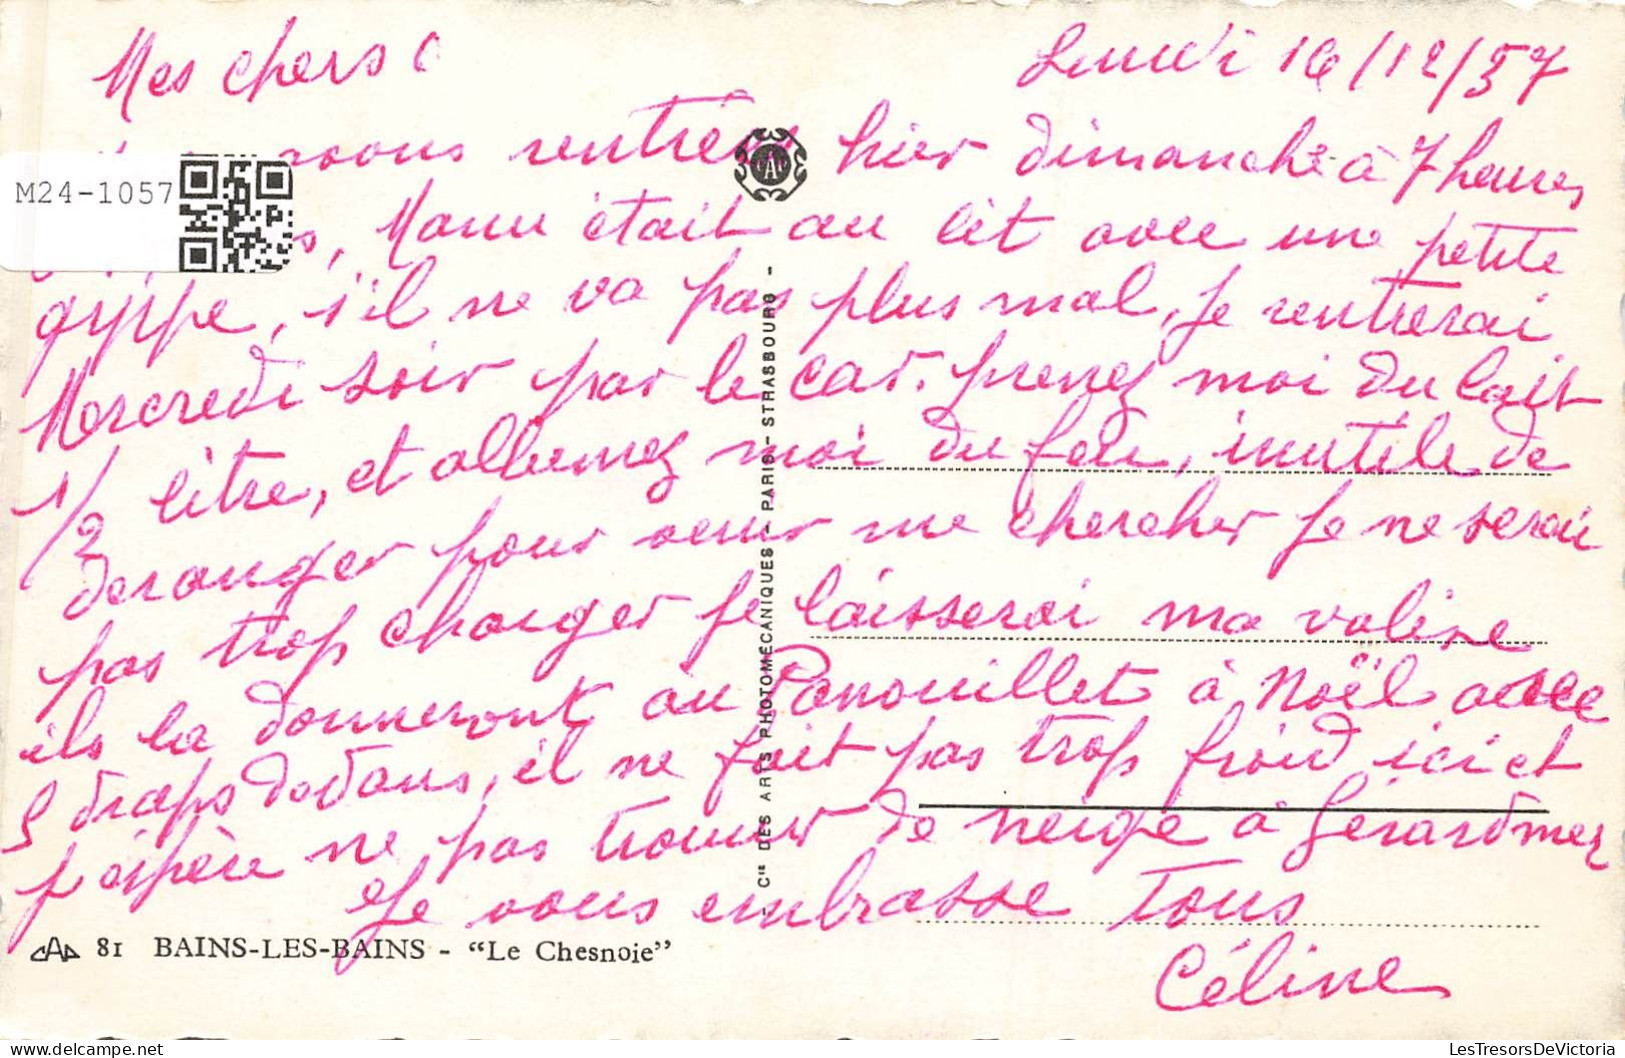 Mes chers
Lundi 16/12/57
nous rentrées hier dimanche à 7 heures
M24-1057
Manu était au lit avec une petite
grippe, s'il ne va pas plus mal, je rentrerai
Mercredi soir par le car. prenez moi du lait
1/2 litre, et allumez moi du feu, inutile de
deranger pour venir me chercher je ne serai
pas trop charger je laisserai ma valise
ils la donneront au Panouillet à Noël avec
draps dedans, il ne fait pas trop froid ici et
j'espère ne pas trouver de neige à Gérardmer
Je vous embrasse tous
Céline
CAP 81 BAINS-LES-BAINS - “Le Chesnoie”
Cie DES ARTS PHOTOMÉCANIQUES - PARIS - STRASBOURG -
LesTresorsDeVictoria